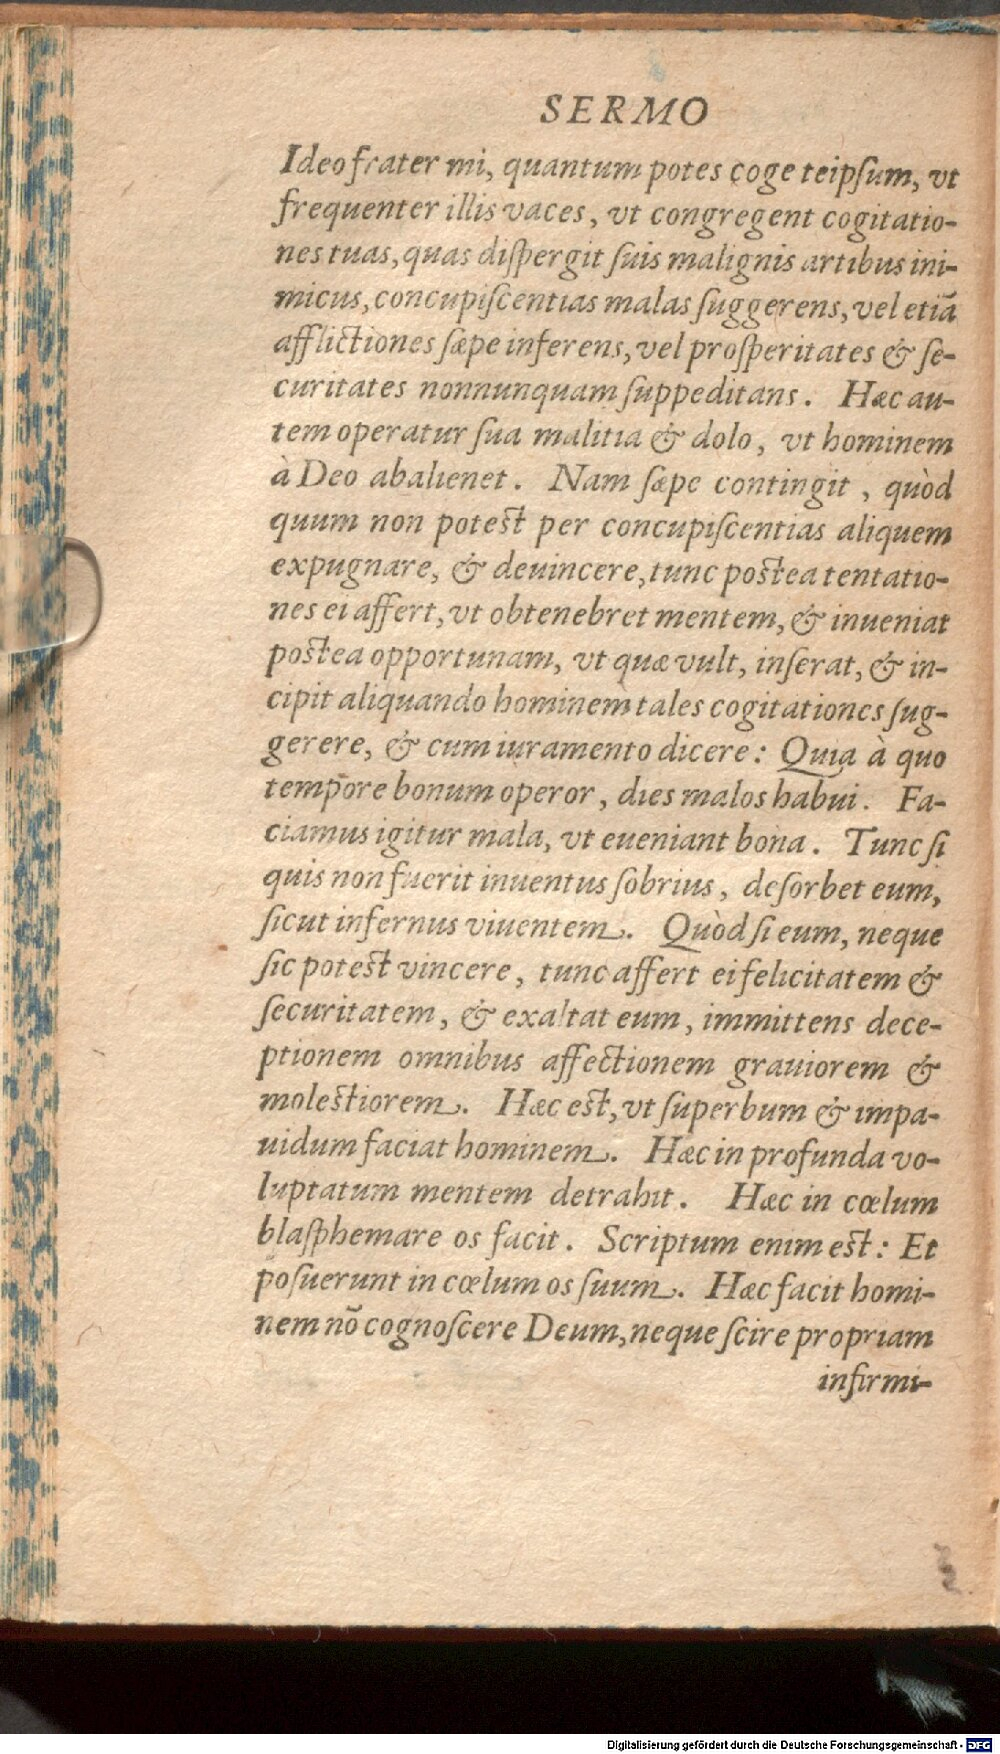 SERMO
Ideo frater mi, quantum potes coge teipſum, vt
frequenter illis vaces, vt congregent cogitatio-
nes tuas, quas diſpergit ſuis malignis artibus ini-
micus, concupiſcentias malas ſuggerens, vel etiā
afflictiones ſæpe inferens, vel proſperitates & ſe-
curitates nonnunquam ſuppeditans. Hæc au-
tem operatur ſua malitia & dolo, vt hominem
à Deo abalienet. Nam ſæpe contingit, quòd
quum non poteſt per concupiſcentias aliquem
expugnare, & deuincere, tunc poſtea tentatio-
nes ei affert, vt obtenebret mentem, & inueniat
poſtea opportunam, vt quæ vult, inſerat, & in-
cipit aliquando hominem tales cogitationes ſug-
gerere, & cum iuramento dicere: Quia à quo
tempore bonum operor, dies malos habui. Fa-
ciamus igitur mala, vt eueniant bona. Tunc ſi
quis non fuerit inuentus ſobrius, deſorbet eum,
ſicut infernus viuentem. Quòd ſi eum, neque
ſic poteſt vincere, tunc affert ei felicitatem &
ſecuritatem, & exaltat eum, immittens dece-
ptionem omnibus affectionem grauiorem &
moleſtiorem. Hæc eſt, vt ſuperbum & impa-
uidum faciat hominem. Hæc in profunda vo-
luptatum mentem detrahit. Hæc in cœlum
blaſphemare os facit. Scriptum enim eſt: Et
poſuerunt in cœlum os ſuum. Hæc facit homi-
nem nō cognoſcere Deum, neque ſcire propriam
infirmi-
Digitalisierung gefördert durch die Deutsche Forschungsgemeinschaft - DFG